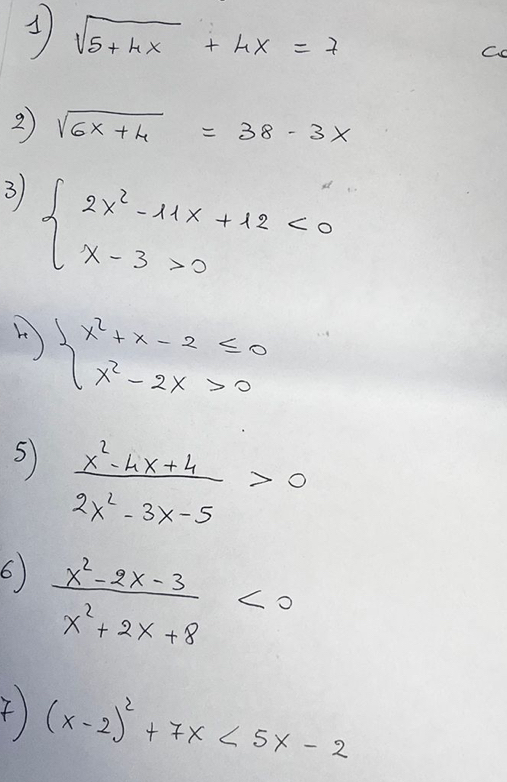 1) √(5+4x) + 4x = 7
2) √(6x+4) = 38 - 3x
3) { 2x² - 11x + 12 < 0
x - 3 > 0
4) { x² + x - 2 ≤ 0
x² - 2x > 0
5) (x² - 4x + 4) / (2x² - 3x - 5) > 0
6) (x² - 2x - 3) / (x² + 2x + 8) < 0
7) (x-2)² + 7x < 5x - 2